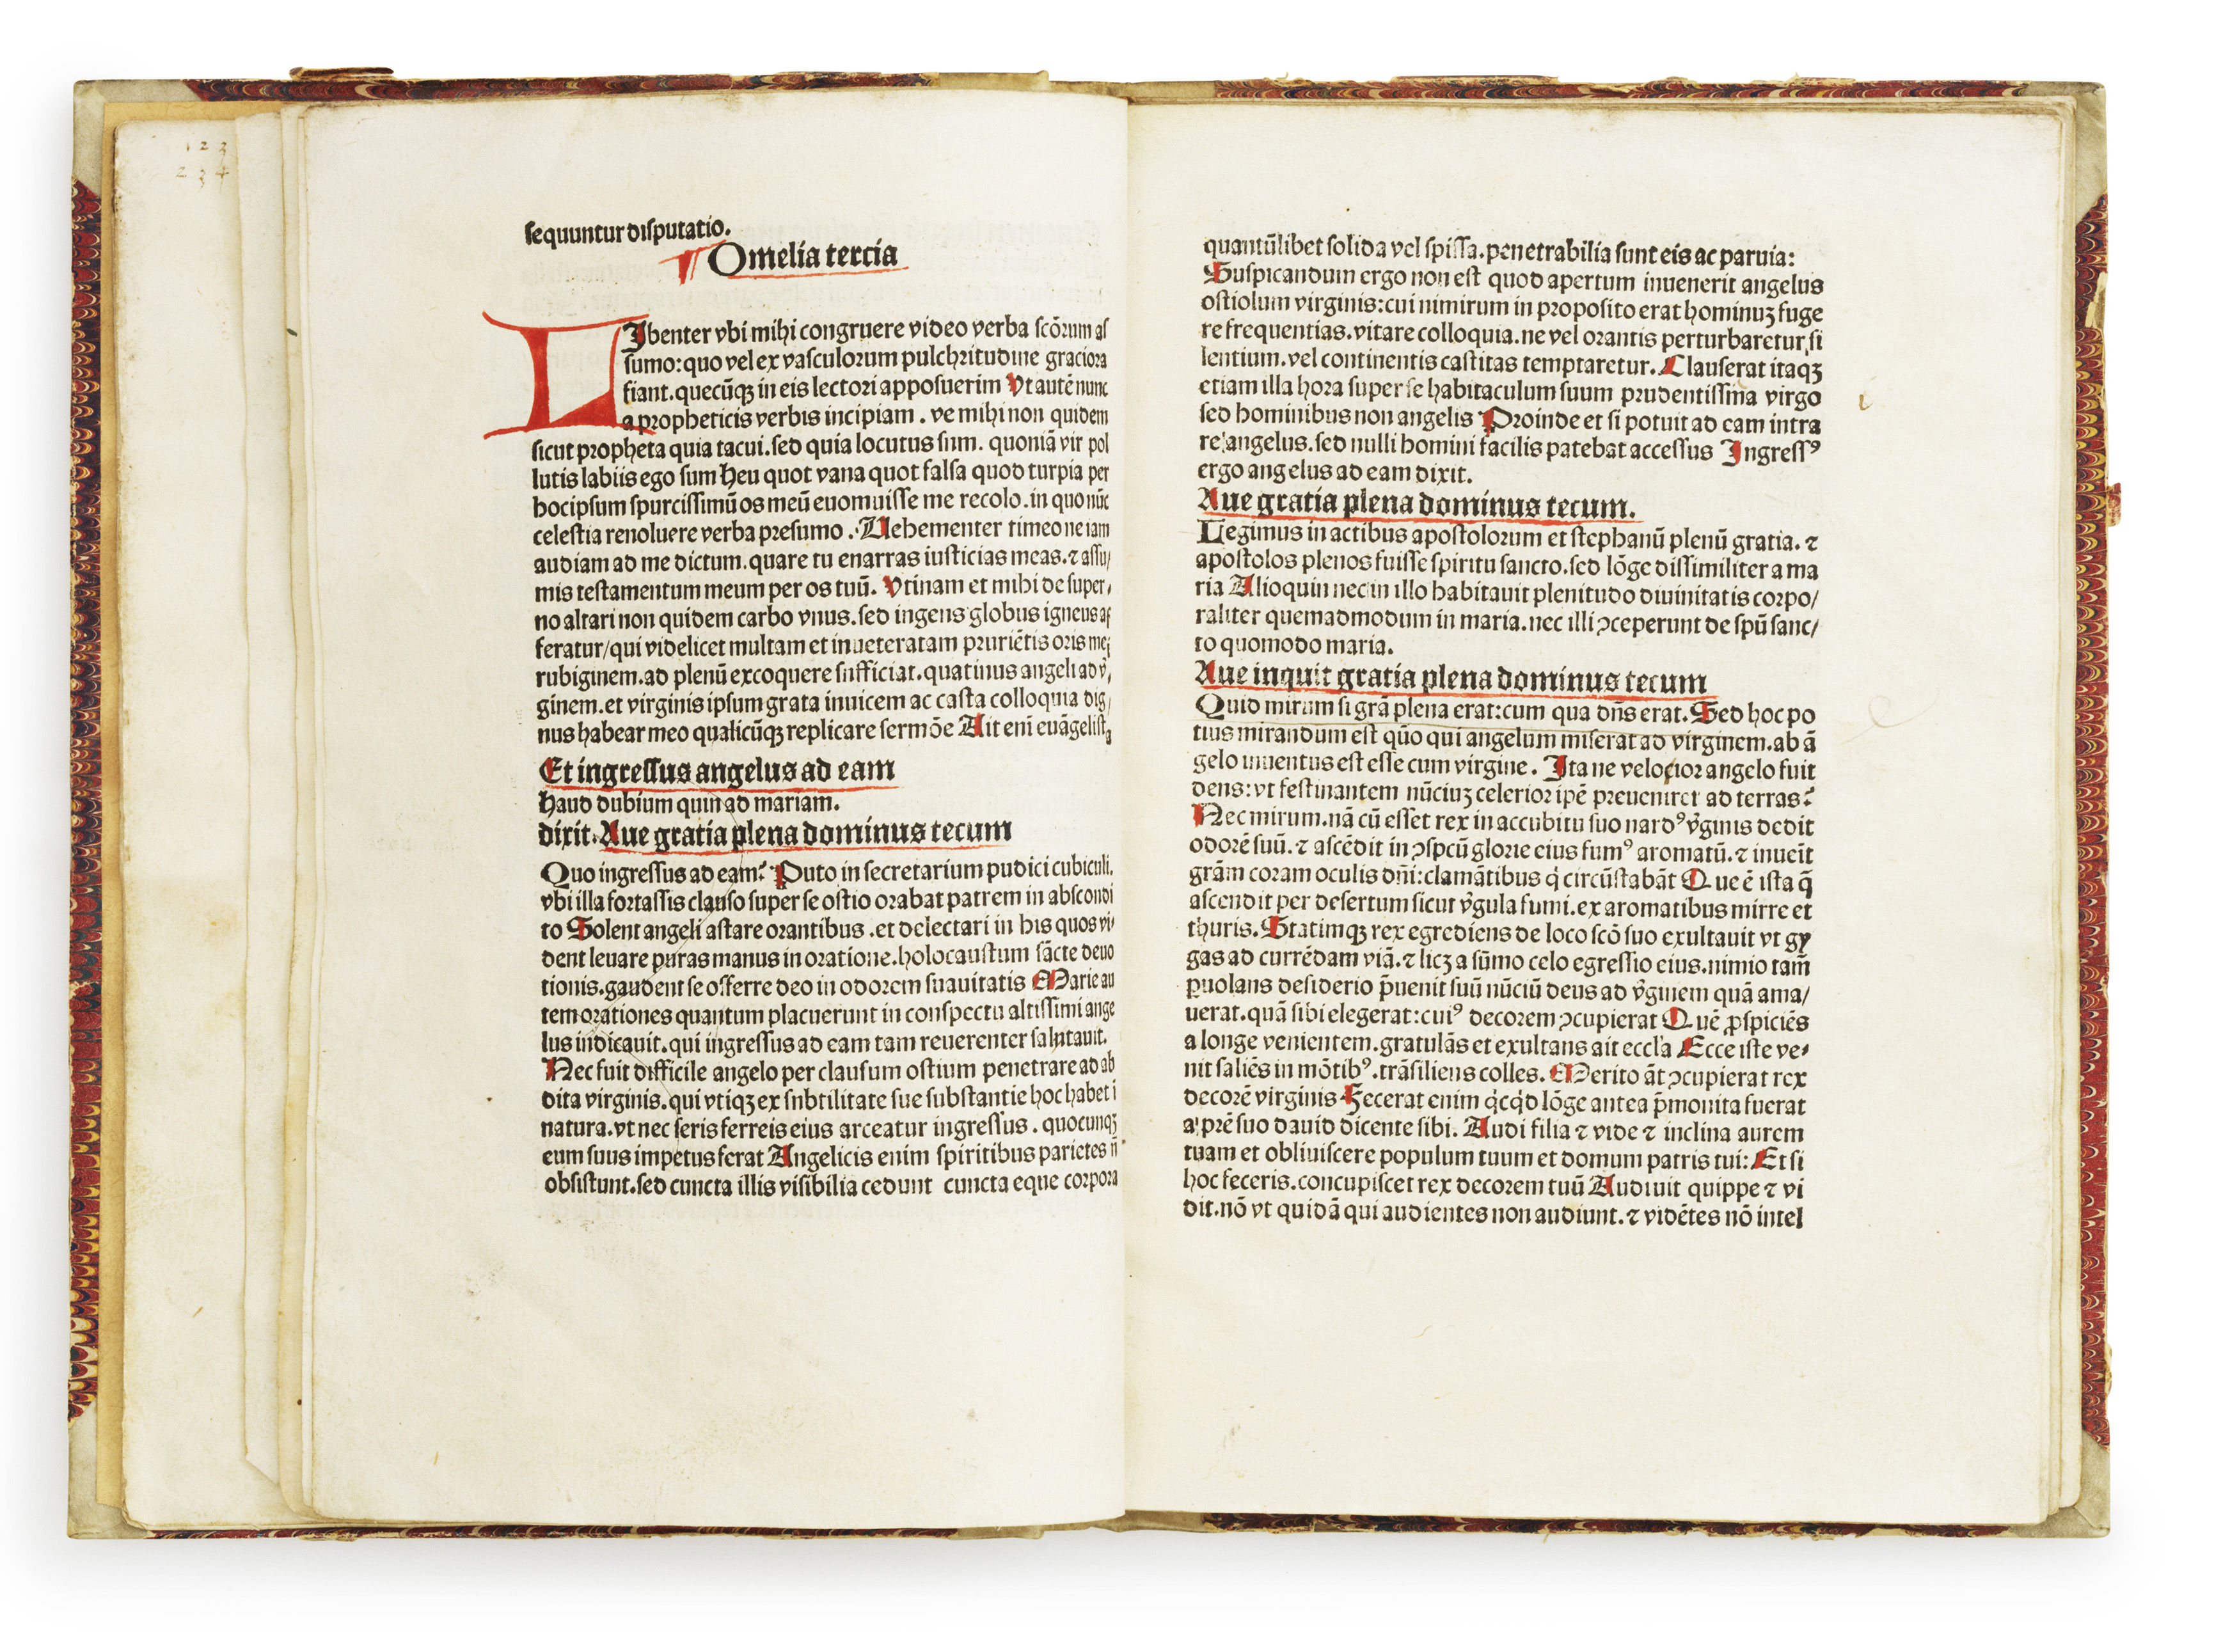 1 2 3
2 3 4
sequuntur disputatio.
¶ Omelia tercia
LIbenter vbi mihi congruere video verba scōrum as
sumo: quo vel ex vasculorum pulchritudine graciora
fiant. quecūqꝫ in eis lectori apposuerim Vt autē nunc
a propheticis verbis incipiam. ve mihi non quidem
sicut propheta quia tacui. sed quia locutus sum. quoniā vir pol
lutis labiis ego sum Heu quot vana quot falsa quod turpia per
hocipsum spurcissimū os meū euomuisse me recolo. in quo nūc
celestia renoluere verba presumo. Uehementer timeo ne iam
audiam ad me dictum. quare tu enarras iusticias meas. ⁊ assu/
mis testamentum meum per os tuū. Vtinam et mihi de super/
no altari non quidem carbo vnus. sed ingens globus igneus af
feratur/qui videlicet multam et inueteratam pruriētis oris mei
rubiginem. ad plenū excoquere sufficiat. quatinus angeli ad v̄/
ginem. et virginis ipsum grata inuicem ac casta colloquia dig/
nus habear meo qualicūqꝫ replicare sermōe Ait eni euāgelista
Et ingressus angelus ad eam
Haud dubium quin ad mariam.
dixit. Aue gratia plena dominus tecum
Quo ingressus ad eam? Puto in secretarium pudici cubiculi.
vbi illa fortassis clauso super se ostio orabat patrem in abscondi
to Solent angeli astare orantibus. et delectari in his quos vi/
dent leuare puras manus in oratione. holocaustum sācte deuo
tionis. gaudent se offerre deo in odorem suauitatis Marie au
tem orationes quantum placuerunt in conspectu altissimi ange
lus indicauit. qui ingressus ad eam tam reuerenter salutauit.
Nec fuit difficile angelo per clausum ostium penetrare ad ab
dita virginis. qui vtiqꝫ ex subtilitate sue substantie hoc habet ī
natura. vt nec seris ferreis eius arceatur ingressus. quocunqꝫ
eum suus impetus ferat Angelicis enim spiritibus parietes n̄
obsistunt. sed cuncta illis visibilia cedunt cuncta eque corpora
quantūlibet solida vel spissa. penetrabilia sunt eis ac paruia:
Suspicandum ergo non est quod apertum inuenerit angelus
ostiolum virginis: cui nimirum in proposito erat hominuꝫ fuge
re frequentias. vitare colloquia. ne vel orantis perturbaretur si
lentium. vel continentis castitas temptaretur. Clauserat itaqꝫ
etiam illa hora super se habitaculum suum prudentissima virgo
sed hominibus non angelis Proinde et si potuit ad eam intra
re angelus. sed nulli homini facilis patebat accessus Ingressꝰ
ergo angelus ad eam dixit.
Aue gratia plena dominus tecum.
Legimus in actibus apostolorum et stephanū plenū gratia. ⁊
apostolos plenos fuisse spiritu sancto. sed lōge dissimiliter a ma
ria Alioquin nec in illo habitauit plenitudo diuinitatis corpo/
raliter quemadmodum in maria. nec illi ꝯceperunt de spū sanc/
to quomodo maria.
Aue inquit gratia plena dominus tecum
Quid mirum si grā plena erat: cum qua dn̄s erat. Sed hoc po
tius mirandum est quō qui angelum miserat ad virginem. ab ā
gelo inuentus est esse cum virgine. Ita ne velocior angelo fuit
deus: vt festinantem nūciuꝫ celerior ipē preueniret ad terras?
Nec mirum. nā cū esset rex in accubitu suo nardꝰ v̄ginis dedit
odorē suū. ⁊ ascēdit in ꝯspcū glorie eius fumꝰ aromatū. ⁊ inueīt
grām coram oculis dn̄i: clamātibus q̇ circūstabāt Que ē ista q̄
ascendit per desertum sicut v̄gula fumi. ex aromatibus mirre et
thuris. Statimqꝫ rex egrediens de loco scō suo exultauit vt gy
gas ad currēdam viā. ⁊ licꝫ a sūmo celo egressio eius. nimio tam̄
ꝑuolans desiderio p̄uenit suū nūciū deus ad v̄ginem quā ama/
uerat. quā sibi elegerat: cuiꝰ decorem ꝯcupierat Quē ꝓspiciēs
a longe venientem. gratulās et exultans ait eccl'a Ecce iste ve/
nit saliēs in mōtibꝰ. trāsiliens colles. Merito āt ꝯcupierat rex
decorē virginis Fecerat enim q̇cq̇d lōge antea p̄monita fuerat
a prē suo dauid dicente sibi. Audi filia ⁊ vide ⁊ inclina aurem
tuam et obliuiscere populum tuum et domum patris tui: Et si
hoc feceris. concupiscet rex decorem tuū Audiuit quippe ⁊ vi
dit. nō vt quidā qui audientes non audiunt. ⁊ vidētes nō intel